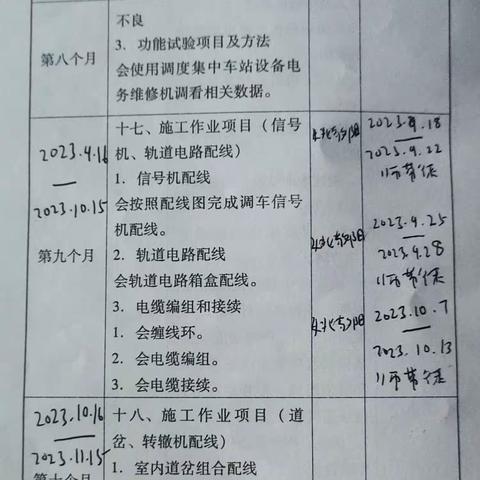 不良
3. 功能试验项目及方法
第八个月
会使用调度集中车站设备电
务维修机调看相关数据。
十七、施工作业项目（信号
2023.9.18
机、轨道电路配线）
2023.9.22
1. 信号机配线
师带徒
2023.10.15
会按照配线图完成调车信号
机配线。
2023.9.25
第九个月
2. 轨道电路配线
2023.9.28
会轨道电路箱盒配线。
师带徒
3. 电缆编组和接续
2023.10.7
1. 会缠线环。
2. 会电缆编组。
2023.10.13
3. 会电缆接续。
师带徒
2023.10.16
十八、施工作业项目（道
2023.11.15
岔、转辙机配线）
1. 室内道岔组合配线
第十个月